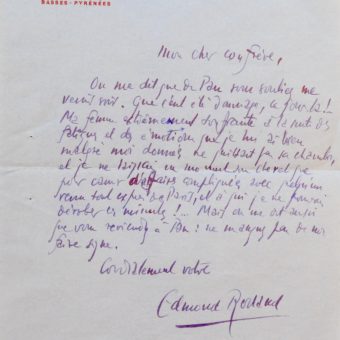 BASSES-PYRÉNÉES
Mon cher confrère,
On me dit que de Pau vous vouliez me
venir voir. Quel eût été dommage, ce jour-là!
Ma femme extrêmement souffrante à la suite des
fatigues et des émotions que je lui ai bien
malgré moi données ne quittait pas sa chambre,
et je ne laissais un moment son chevet que
pour causer d'affaires compliquées avec quelqu'un
venu tout exprès de Paris, et à qui je ne pouvais
dérober ces minutes!... Mais on me dit aussi
que vous reviendrez à Pau: ne manquez pas de me
faire signe.
Cordialement votre
Edmond Rostand